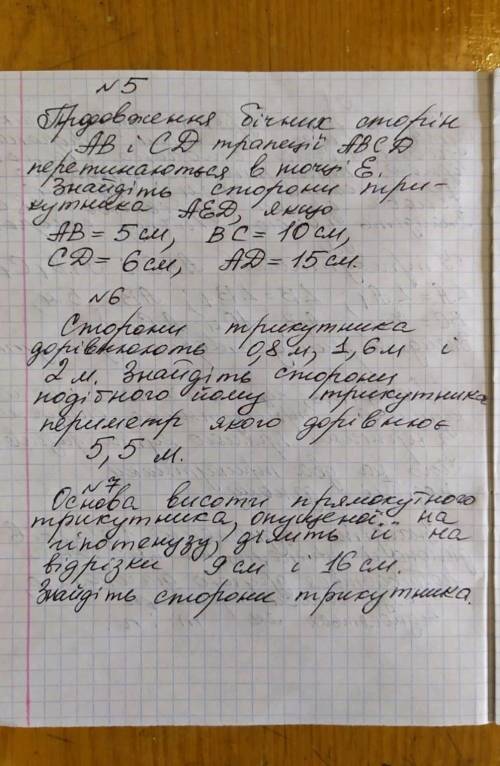 №5
Продовження бічних сторін
AB і CD трапеції ABCD
перетинаються в точці E.
Знайдіть сторони три-
кутника AED, якщо
AB = 5 см, BC = 10 см,
CD = 6 см, AD = 15 см.
№6
Сторони трикутника
дорівнюють 0,8 м, 1,6 м і
2 м. Знайдіть сторони
подібного йому трикутника
периметр якого дорівнює
5,5 м.
№7
Основа висоти прямокутного
трикутника, опущеної на
гіпотенузу, ділить її на
відрізки 9 см і 16 см.
Знайдіть сторони трикутника.